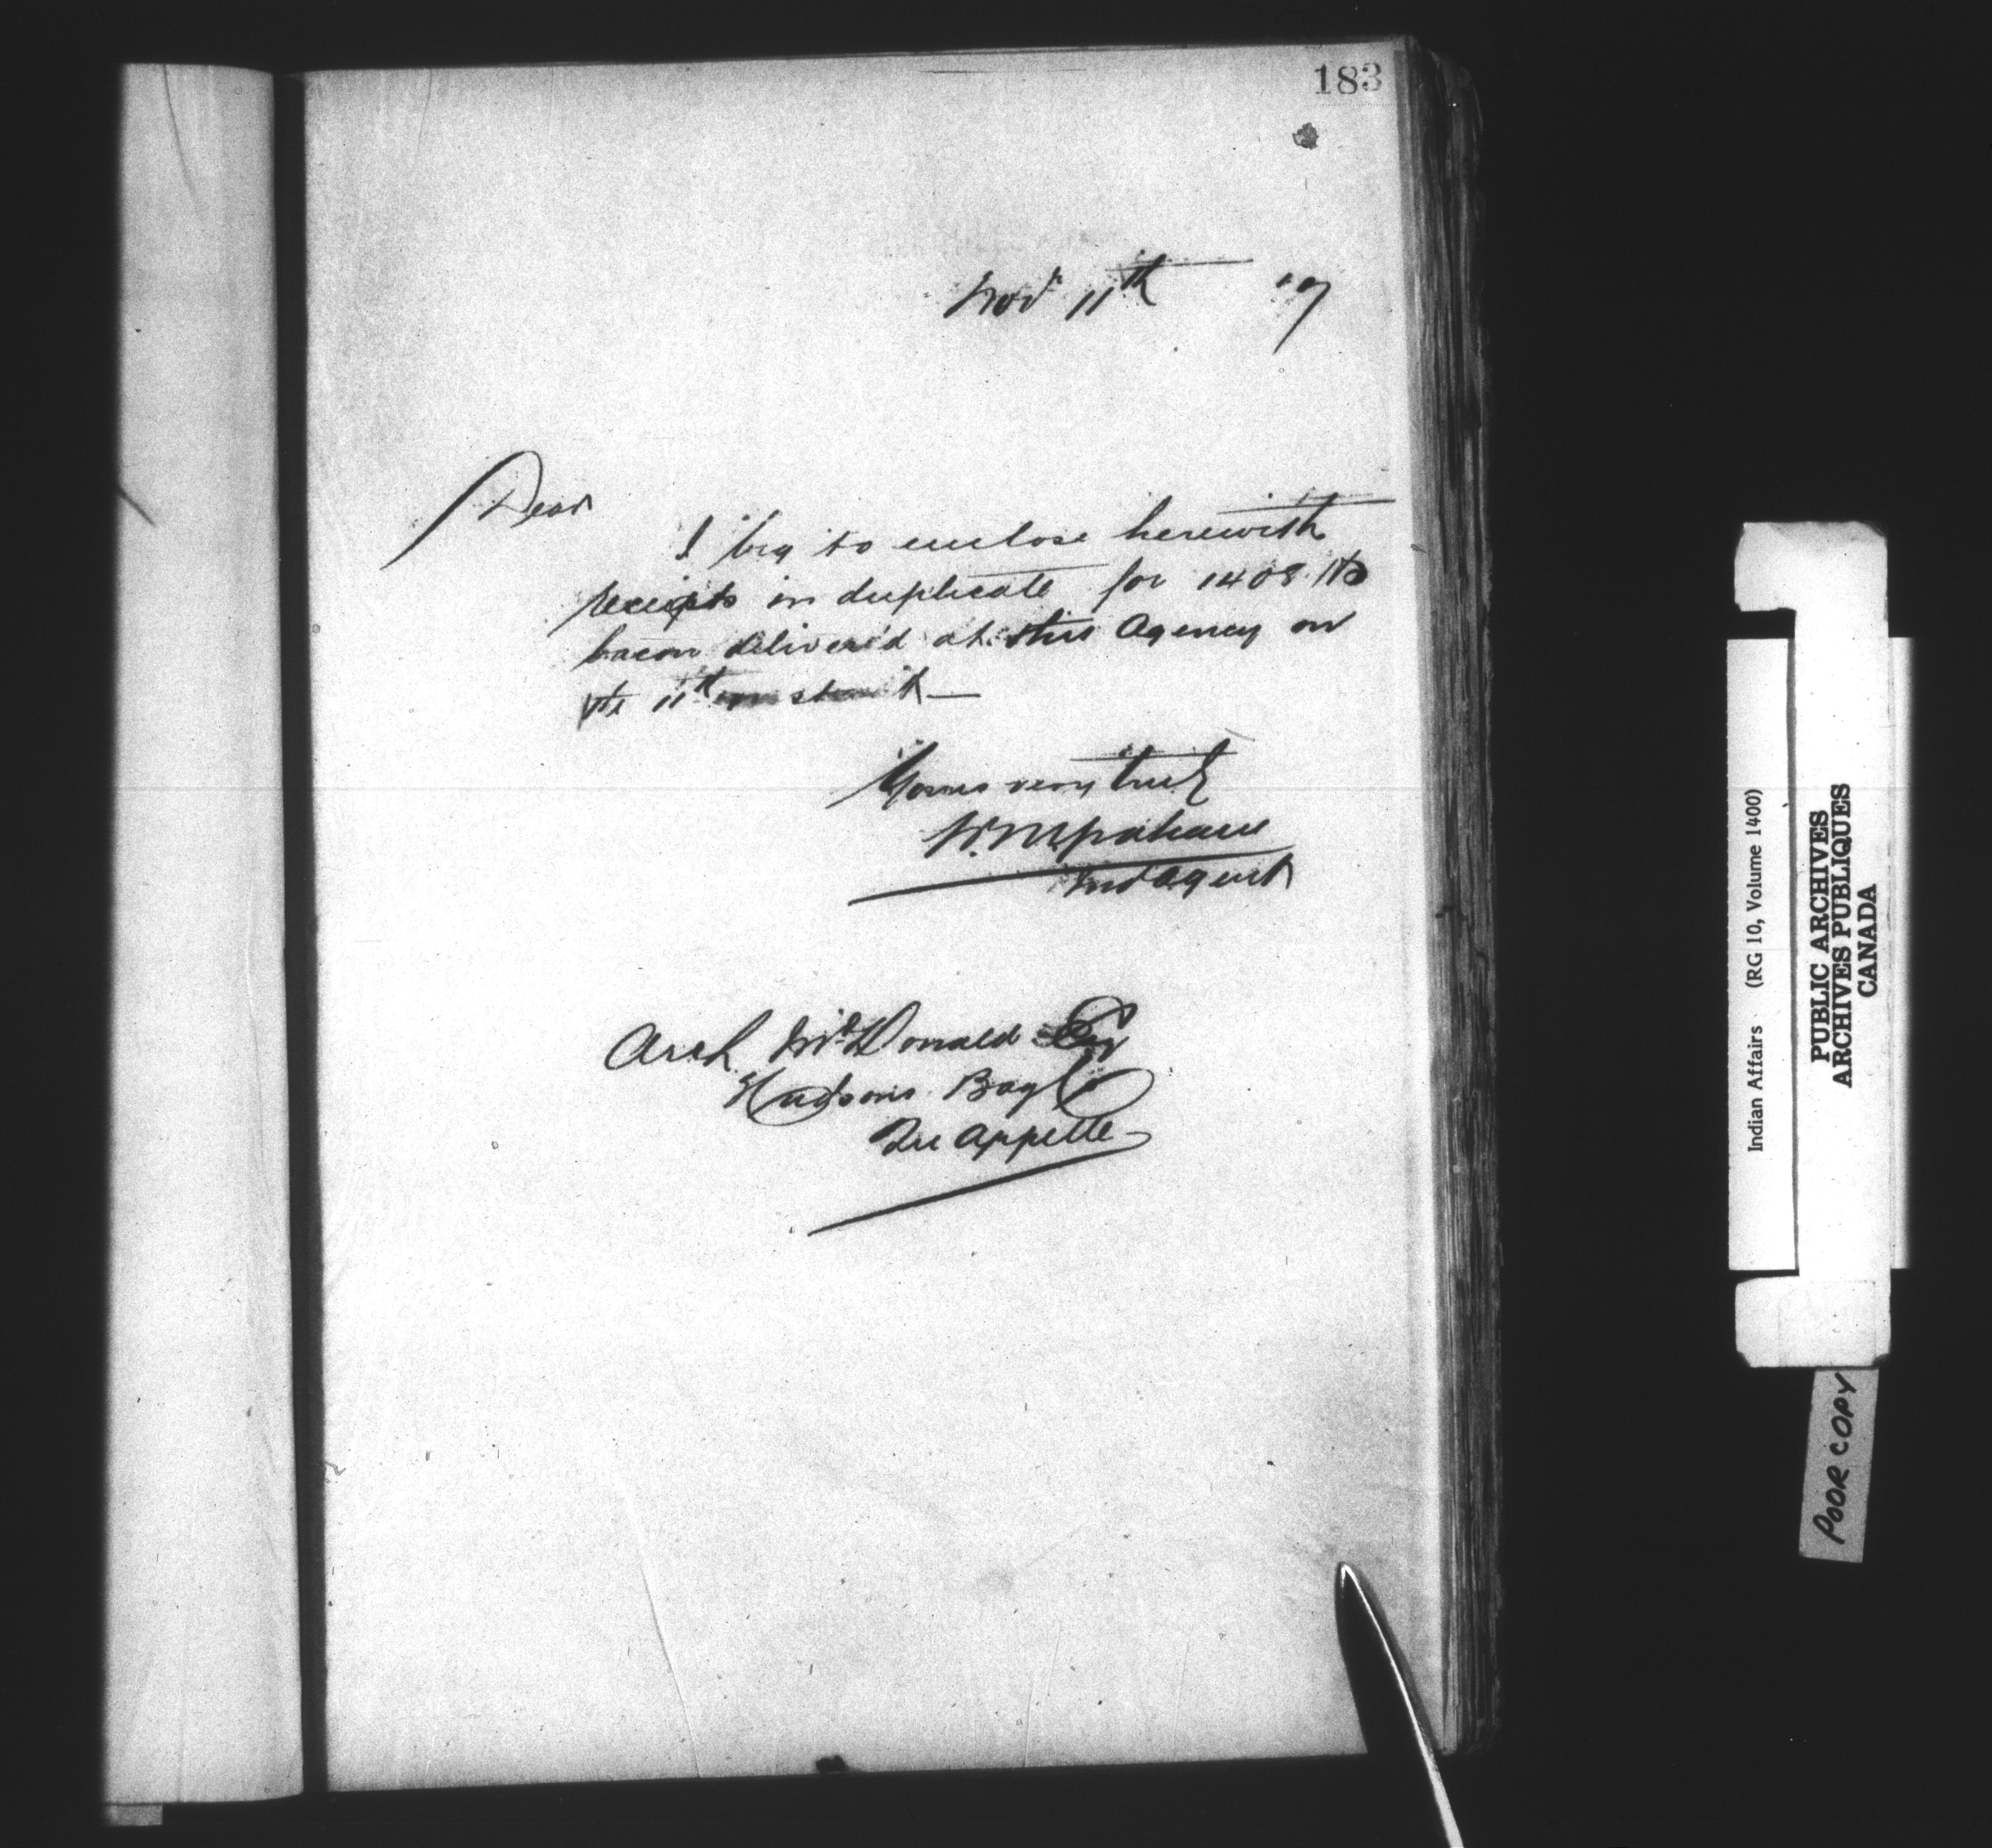 183
Novr 11th
Dear
I beg to enclose herewith
receipts in duplicate for 1408 lbs
bacon delivered at this Agency on
the 11th
Yours very truly
Ind Agent
Arch McDonald Esq
Hudsons Bay Co
Qu Appelle
Indian Affairs (RG 10, Volume 1400)
PUBLIC ARCHIVES
ARCHIVES PUBLIQUES
CANADA
POOR COPY